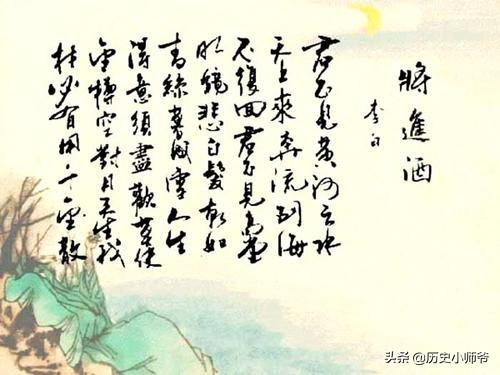 將進酒
李白
君不見黃河之水
天上來奔流到海
不復回君不見高堂
明鏡悲白髮朝如
青絲暮成雪人生
得意須盡歡莫使
金樽空對月天生我
材必有用千金散
头条 @历史小师爷